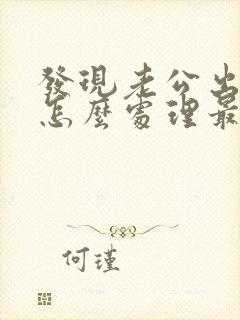 發現老公出
怎麼處理最
何瑾